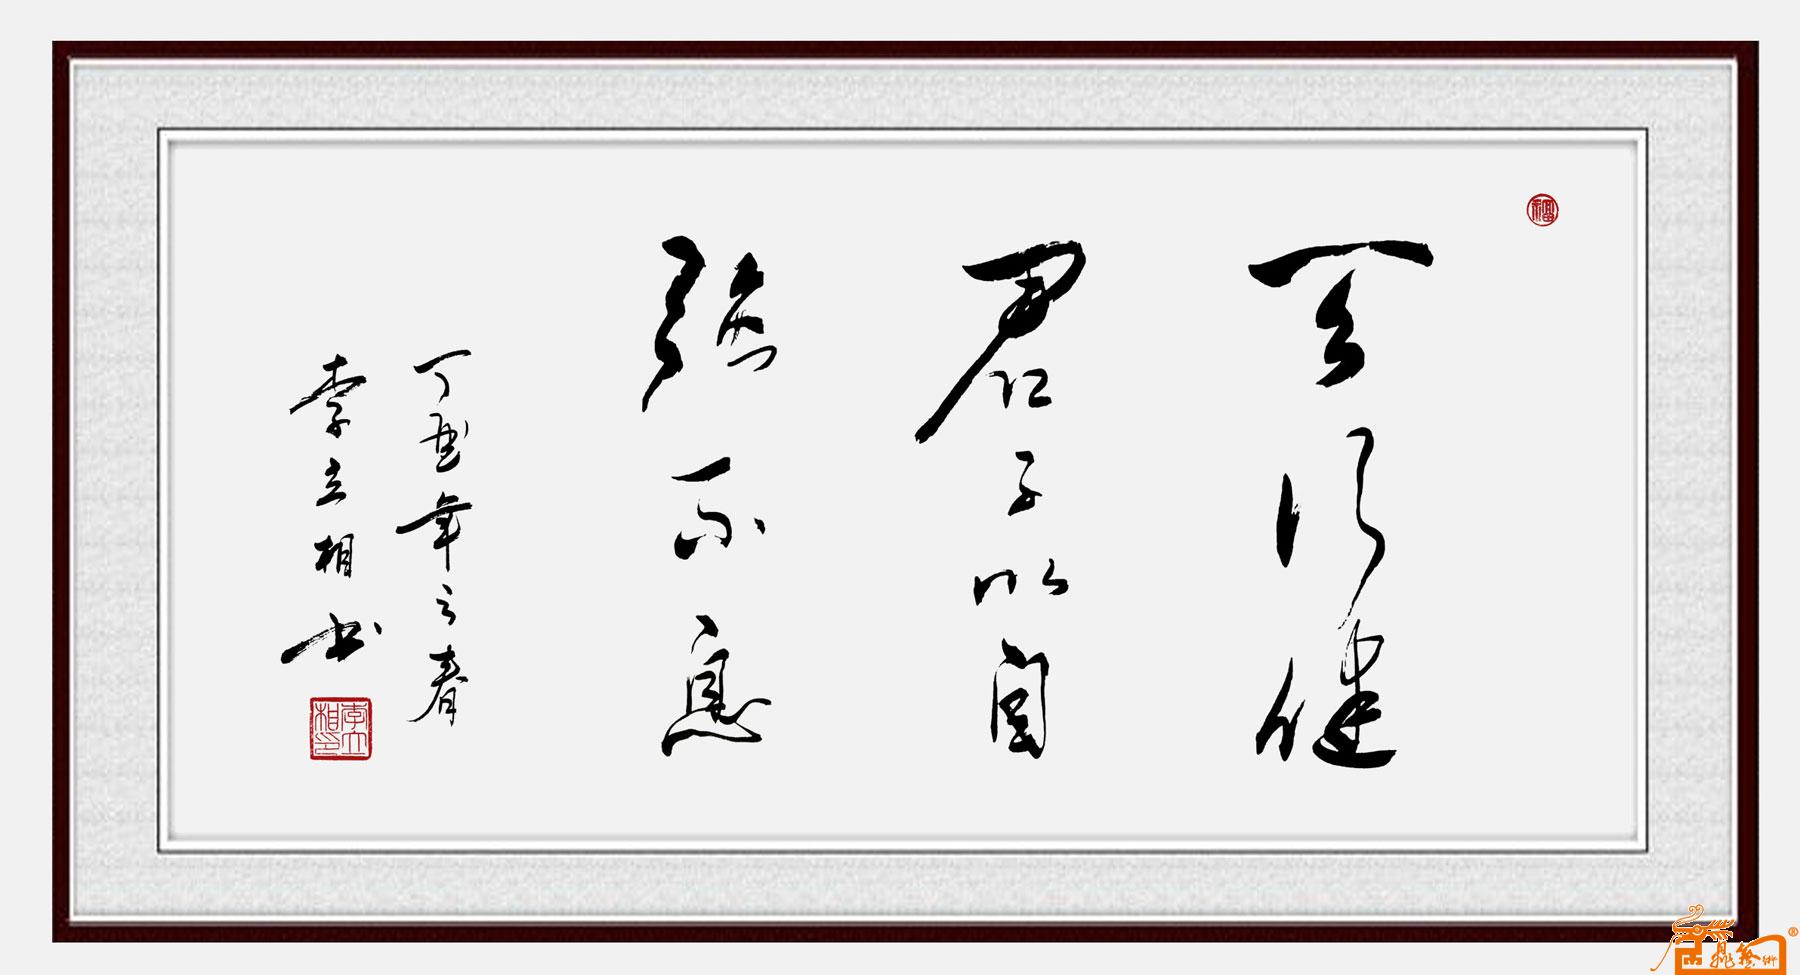 天行健
君子以自
强不息
丁酉年之春
李立相书
李立相印
福